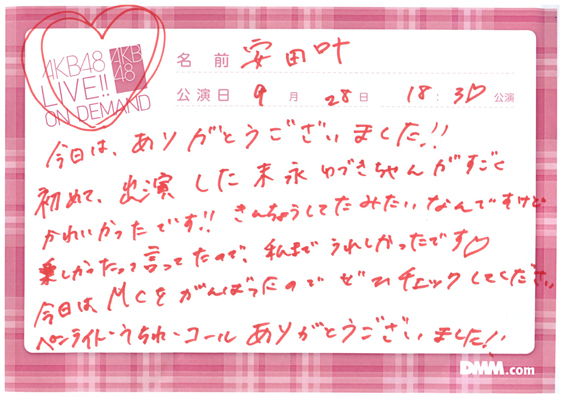 AKB48
LIVE!!
ON DEMAND
AKB
48
名前 安田叶
公演日 9月28日 18:30公演
今日は、ありがとうございました!!
初めて、出演した末永ゆづきちゃんがすごく
かわいかったです!! きんちょうしてたみたいなんですけど
楽しかったって言ってたので、私まで うれしかったです♡
今日はMCをがんばったので ぜひチェックしてください
ペンライト・うちわ・コール ありがとうございました!
DMM.com